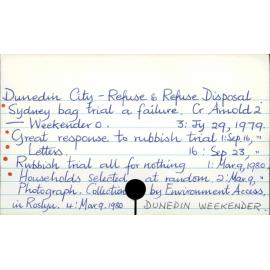 Dunedin City - Refuse & Refuse Disposal
Sydney bag trial a failure. Cr Arnold 2
— Weekender o. 3: Jy 29, 1979.
Great response to rubbish trial 1: Sep. 16, "
Letters. 16: Sep 23, "
Rubbish trial all for nothing 1: Mar. 9, 1980
Households selected at random. 2: Mar. 9, "
Photograph. Collection by Environment Access,
in Roslyn. 4: Mar. 9. 1980 DUNEDIN WEEKENDER.